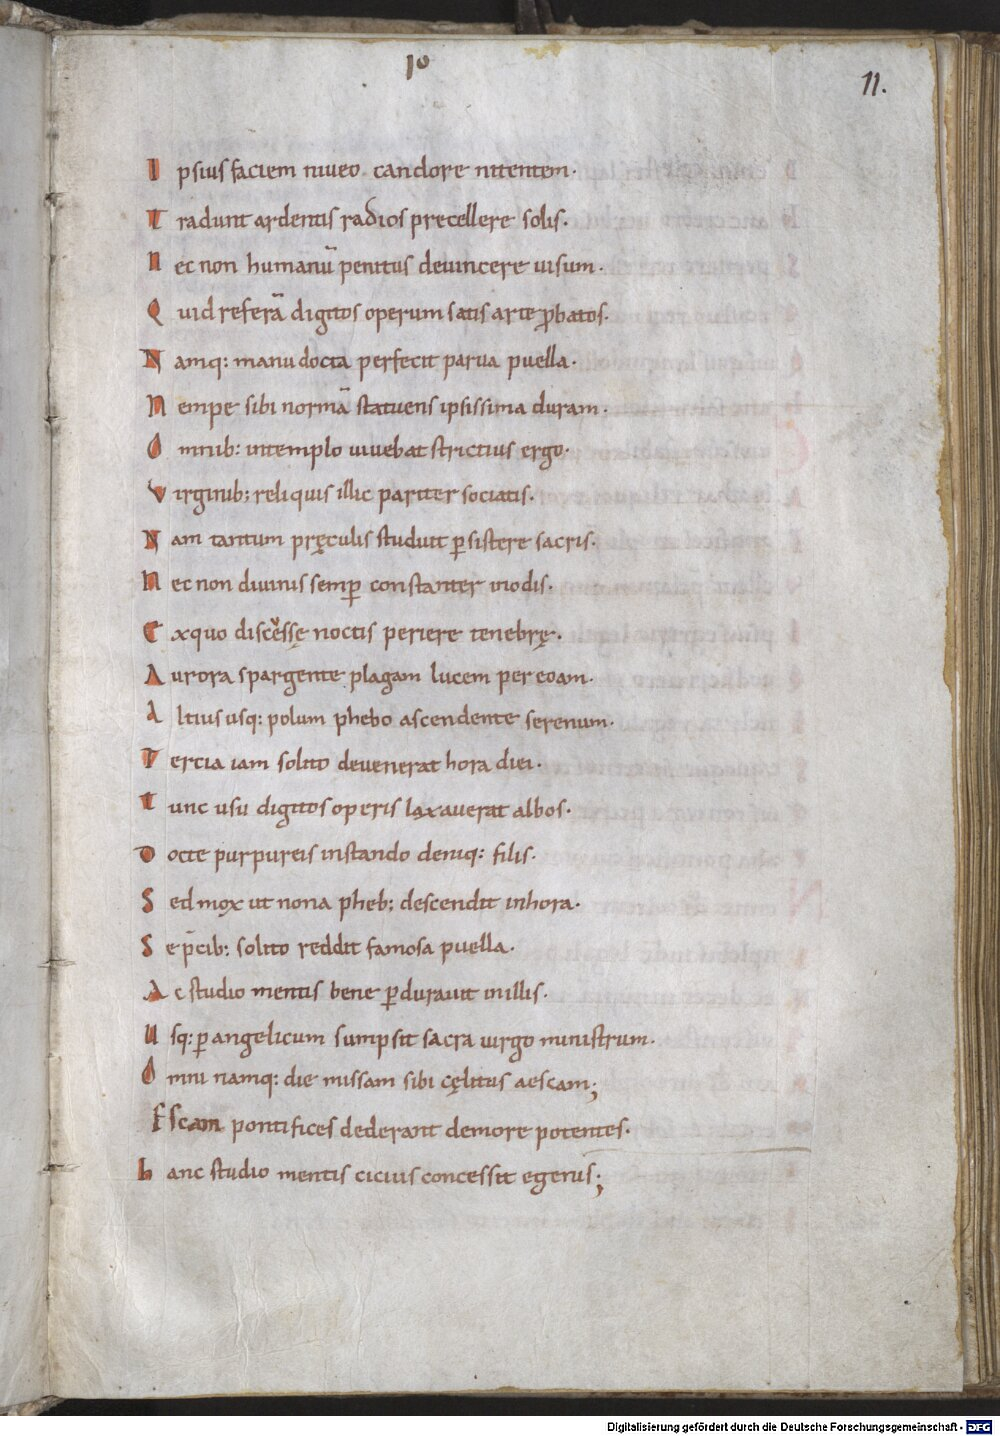 10
11.
I psius faciem niueo candore nitentem·
T radunt ardentis radios precellere solis·
N ec non humanū penitus deuincere uisum·
Q uid referā digitos operum satis arte ꝓbatos·
N amq: manu docta perfecit parua puella·
N empe sibi normā statuens ipsissima duram·
O mnib: intemplo uiuebat strictius ergo·
V irginib; reliquis illic pariter sociatis·
N am tantum pręculis studuit ꝑsistere sacris·
N ec non diuinis semꝑ constanter inodis·
E xquo discessę noctis periere tenebrę·
A urora spargente plagam lucem per eoam·
A ltius usq: polum phebo ascendente serenum·
T ercia iam solito deuenerat hora diei·
T unc usu digitos operis laxauerat albos·
D octe purpureis instando deniq: filis·
S ed mox ut nona pheb; descendit inhora·
S e p̄cib: solito reddit famosa puella·
A c studio mentis bene ꝑdurauit inillis·
U sq: ꝑ angelicum sumpsit sacra uirgo ministrum·
O mni namq: die missam sibi cęlitus aescam;
Escam pontifices dederant demore potentes·
h anc studio mentis cicius concessit egenis;
Digitalisierung gefördert durch die Deutsche Forschungsgemeinschaft - DFG